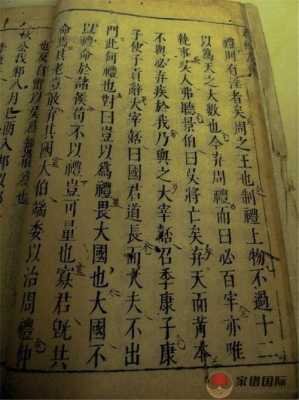 禮則有淫者矣周之王也制禮上物不過十二
以為天之大數也今弃周禮而曰必百牢亦唯
執事吳人弗聽景伯曰吳將亡矣弃天而背本
不與必弃疾於我乃與之大宰嚭召季康子康
子使子貢辭大宰嚭曰國君道長而大夫不出
門此何禮也對曰豈以為禮畏大國也大國不
以禮命於諸侯苟不以禮豈可量也寡君既共
命焉其老豈敢弃其國大伯端委以治周禮仲
也反自鄫以吳為無能為也
家谱国际